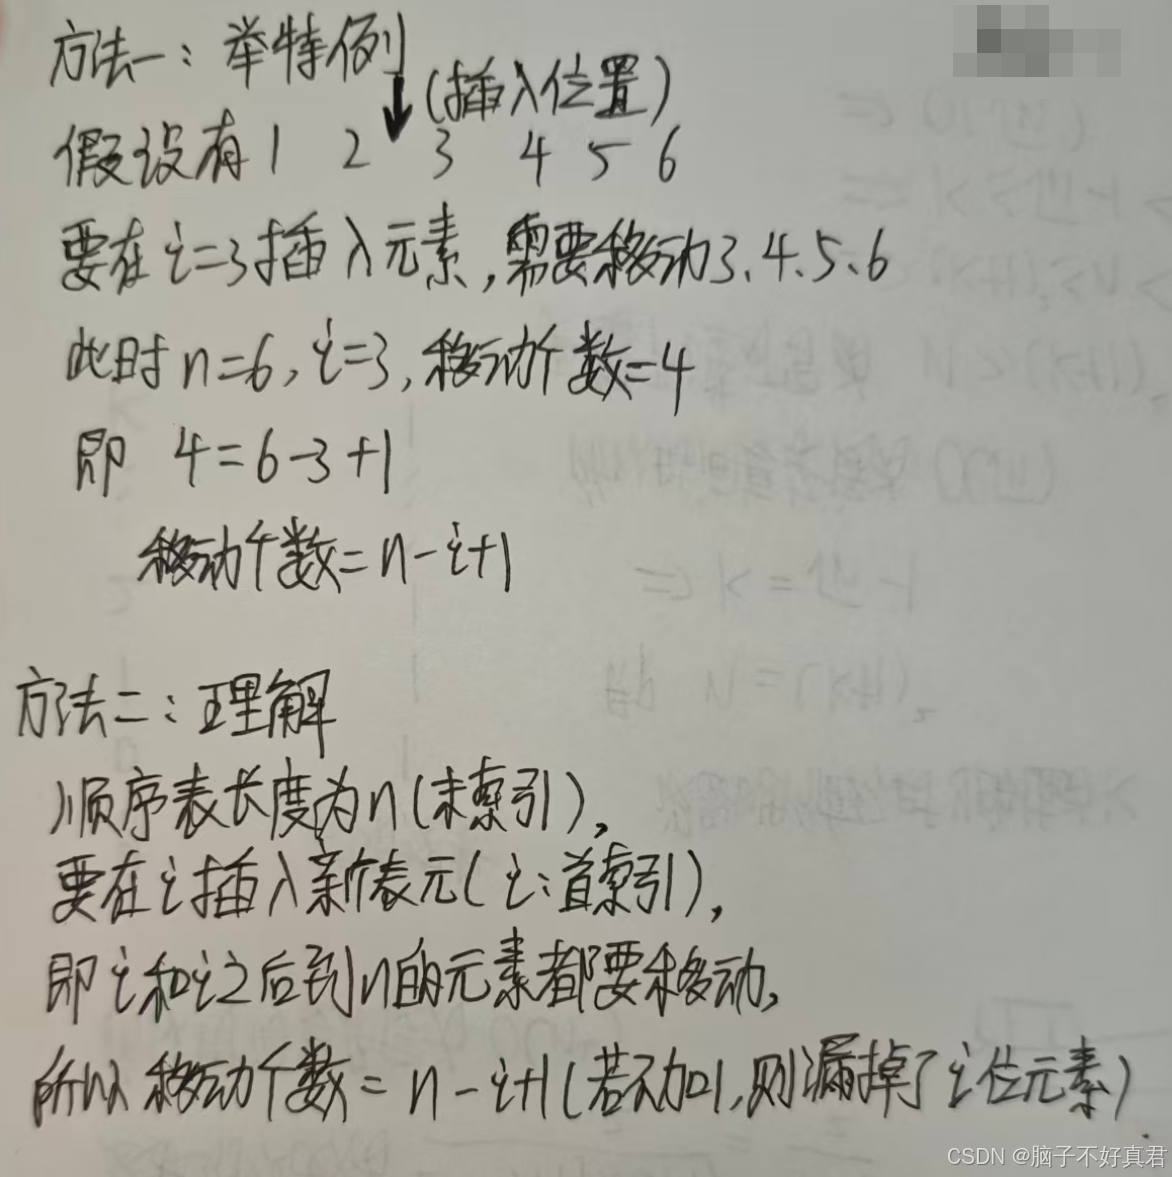 方法一：举特例
(插入位置)
假设有 1 2 3 4 5 6
要在i=3插入元素,需要移动3、4、5、6
此时n=6,i=3,移动个数=4
即 4=6-3+1
移动个数=n-i+1
方法二：理解
顺序表长度为n(末索引),
要在i插入新表元(i:首索引),
即i和i之后到n的元素都要移动,
所以移动个数=n-i+1(若不加1,则漏掉了i位元素)
CSDN @脑子不好真君